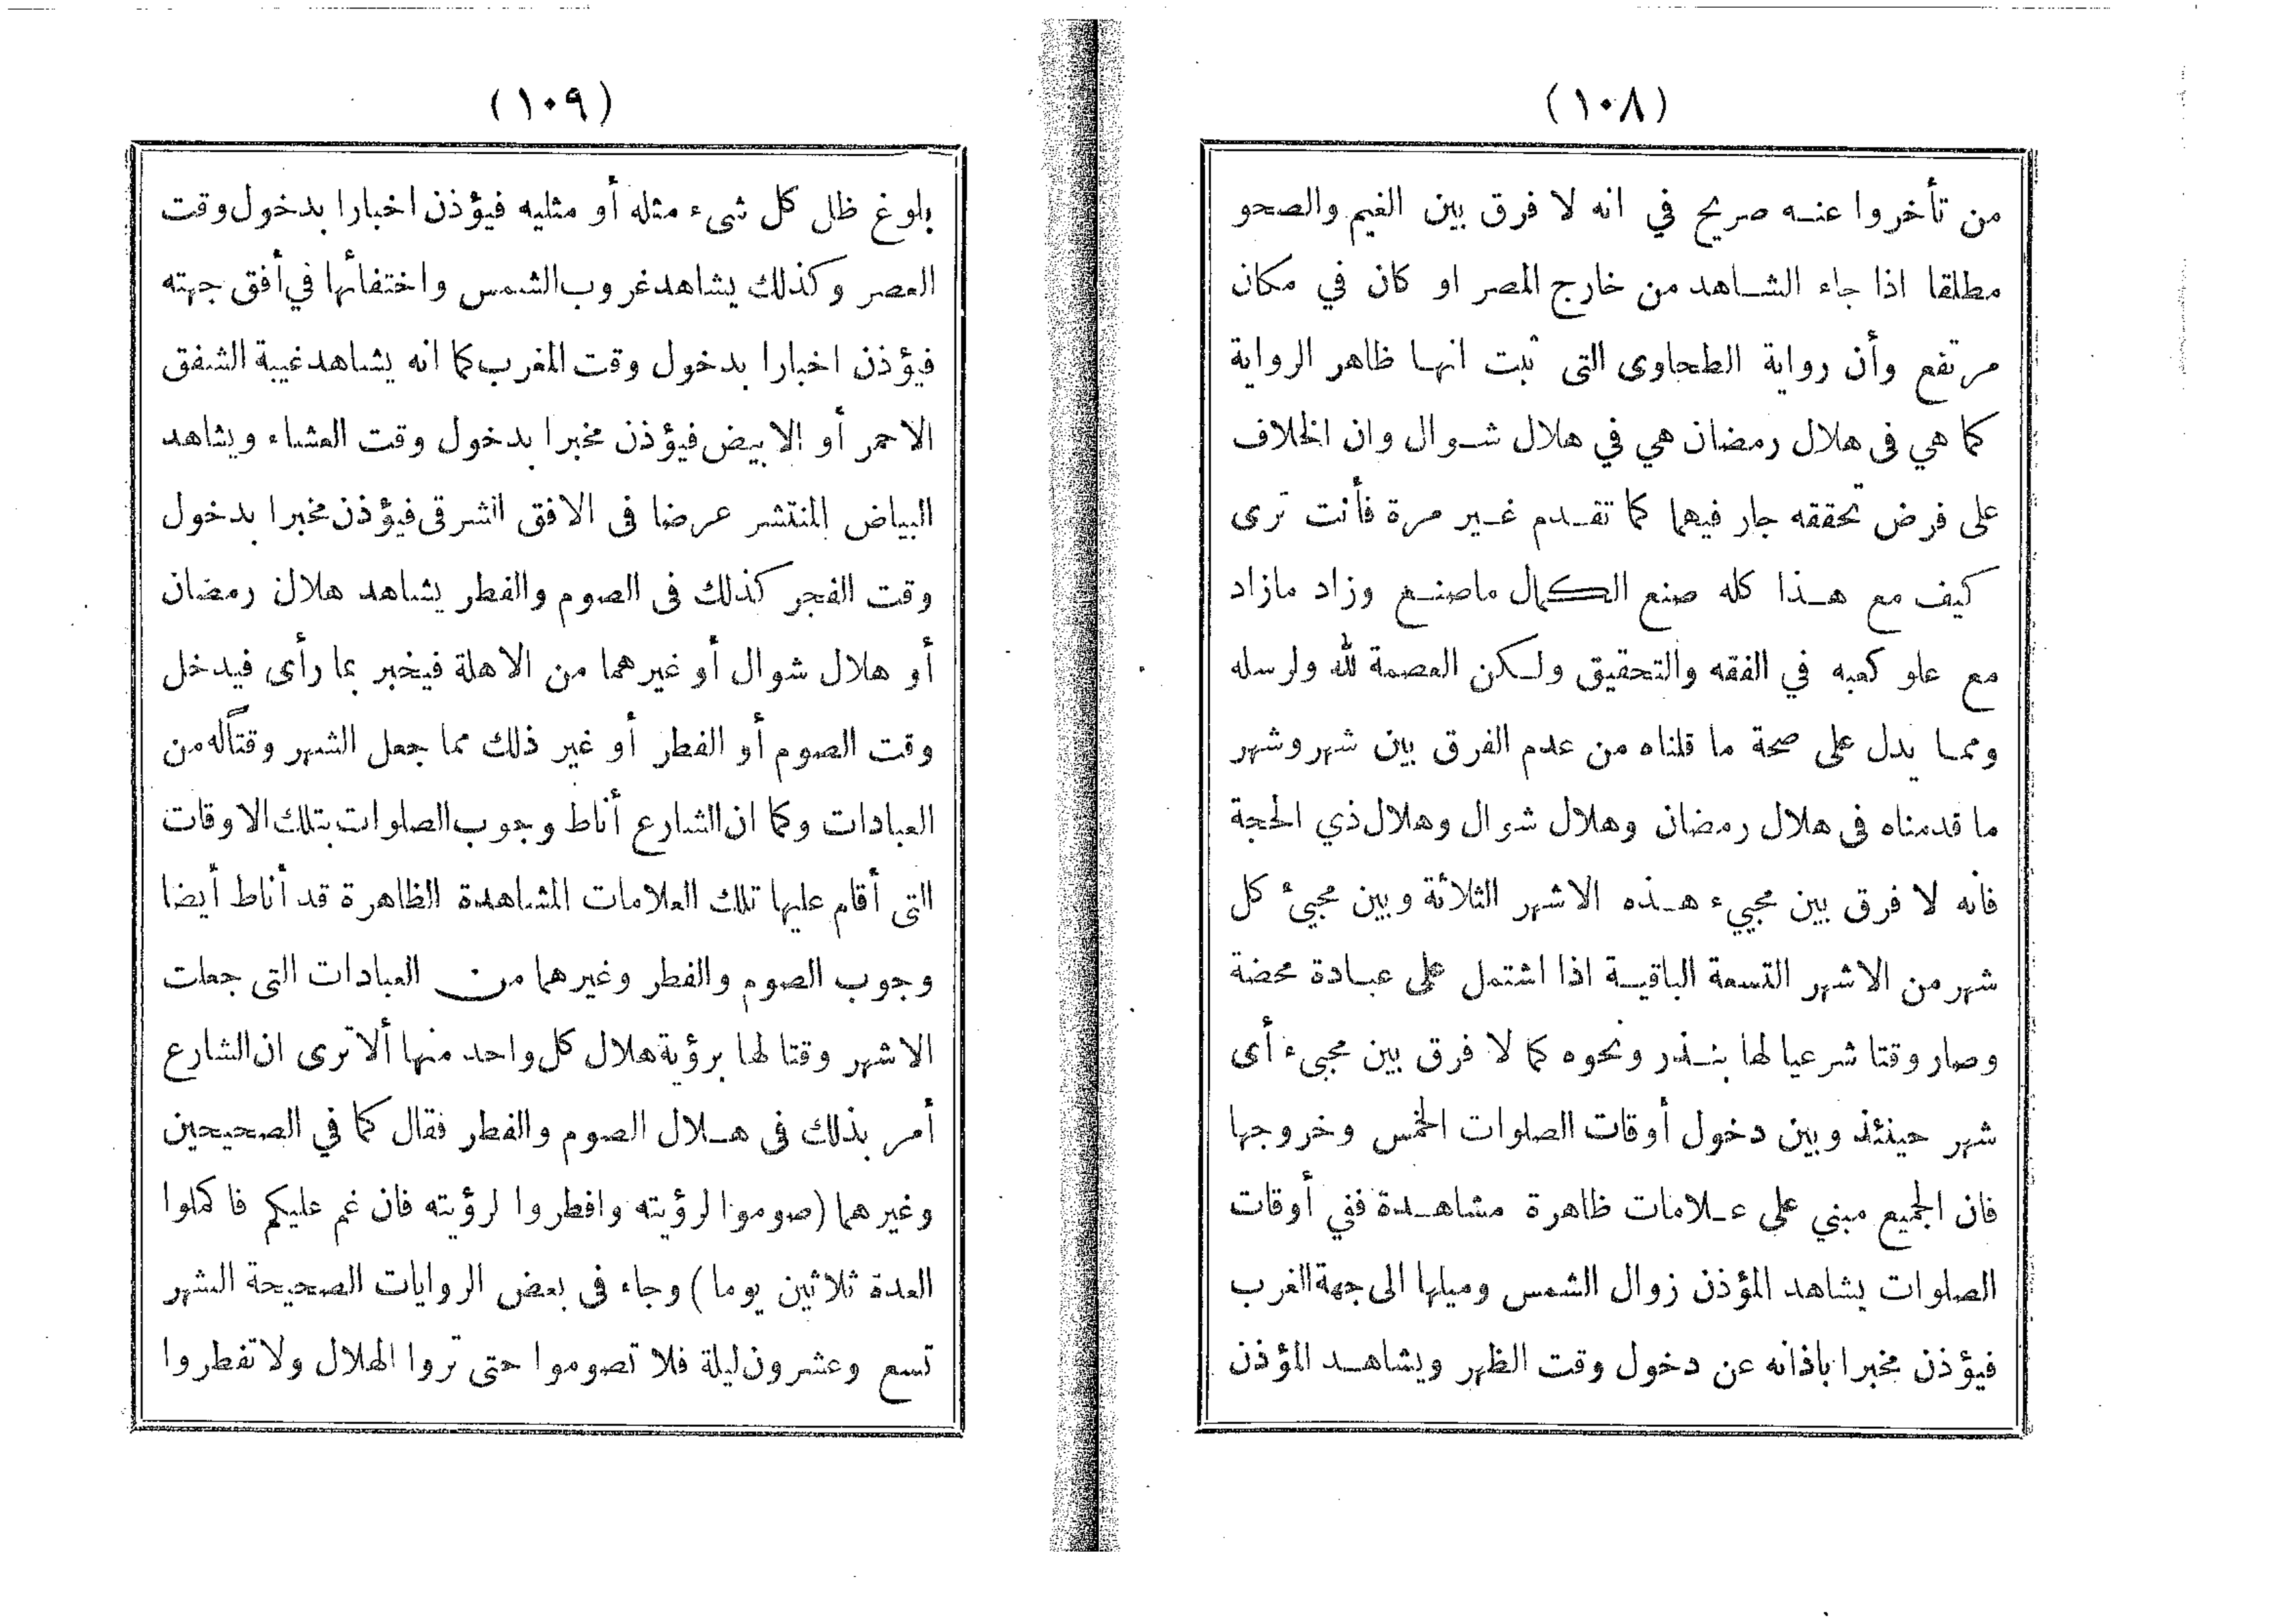 (١٠٨)
من تأخروا عنه صريح في انه لا فرق بين الغيم والصحو
مطلقا اذا جاء الشاهد من خارج المصر او كان في مكان
مرتفع وأن رواية الطحاوى التى ثبت انها ظاهر الرواية
كما هي فى هلال رمضان هي في هلال شوال وان الخلاف
على فرض تحققه جار فيهما كما تقدم غير مرة فأنت ترى
كيف مع هذا كله صنع الكمال ماصنع وزاد مازاد
مع علو كعبه في الفقه والتحقيق ولكن العصمة لله ولرسله
ومما يدل على صحة ما قلناه من عدم الفرق بين شهر وشهر
ما قدمناه فى هلال رمضان وهلال شوال وهلال ذي الحجة
فانه لا فرق بين مجيىء هذه الاشهر الثلاثة وبين مجيئ كل
شهر من الاشهر التسعة الباقية اذا اشتمل على عبادة محضة
وصار وقتا شرعيا لها بنذر ونحوه كما لا فرق بين مجيىء أى
شهر حينئذ وبين دخول أوقات الصلوات الخمس وخروجها
فان الجميع مبني على علامات ظاهرة مشاهدة ففي أوقات
الصلوات يشاهد المؤذن زوال الشمس وميلها الى جهة الغرب
فيؤذن مخبرا باذانه عن دخول وقت الظهر ويشاهد المؤذن
(١٠٩)
بلوغ ظل كل شىء مثله أو مثليه فيؤذن اخبارا بدخول وقت
العصر وكذلك يشاهد غروب الشمس واختفائها في أفق جهته
فيؤذن اخبارا بدخول وقت المغرب كما انه يشاهد غيبة الشفق
الاحمر أو الابيض فيؤذن مخبرا بدخول وقت العشاء ويشاهد
البياض المنتشر عرضا فى الافق الشرقى فيؤذن مخبرا بدخول
وقت الفجر كذلك فى الصوم والفطر يشاهد هلال رمضان
أو هلال شوال أو غيرهما من الاهلة فيخبر بما رأى فيدخل
وقت الصوم أو الفطر أو غير ذلك مما جعل الشهر وقتاً له من
العبادات وكما ان الشارع أناط وجوب الصلوات بتلك الاوقات
التى أقام عليها تلك العلامات المشاهدة الظاهرة قد أناط أيضا
وجوب الصوم والفطر وغيرهما من العبادات التى جعلت
الاشهر وقتا لها برؤية هلال كل واحد منها ألا ترى ان الشارع
أمر بذلك فى هلال الصوم والفطر فقال كما في الصحيحين
وغيرهما (صوموا لرؤيته وافطروا لرؤيته فان غم عليكم فاكملوا
العدة ثلاثين يوما) وجاء فى بعض الروايات الصحيحة الشهر
تسع وعشرون ليلة فلا تصوموا حتى تروا الهلال ولا تفطروا